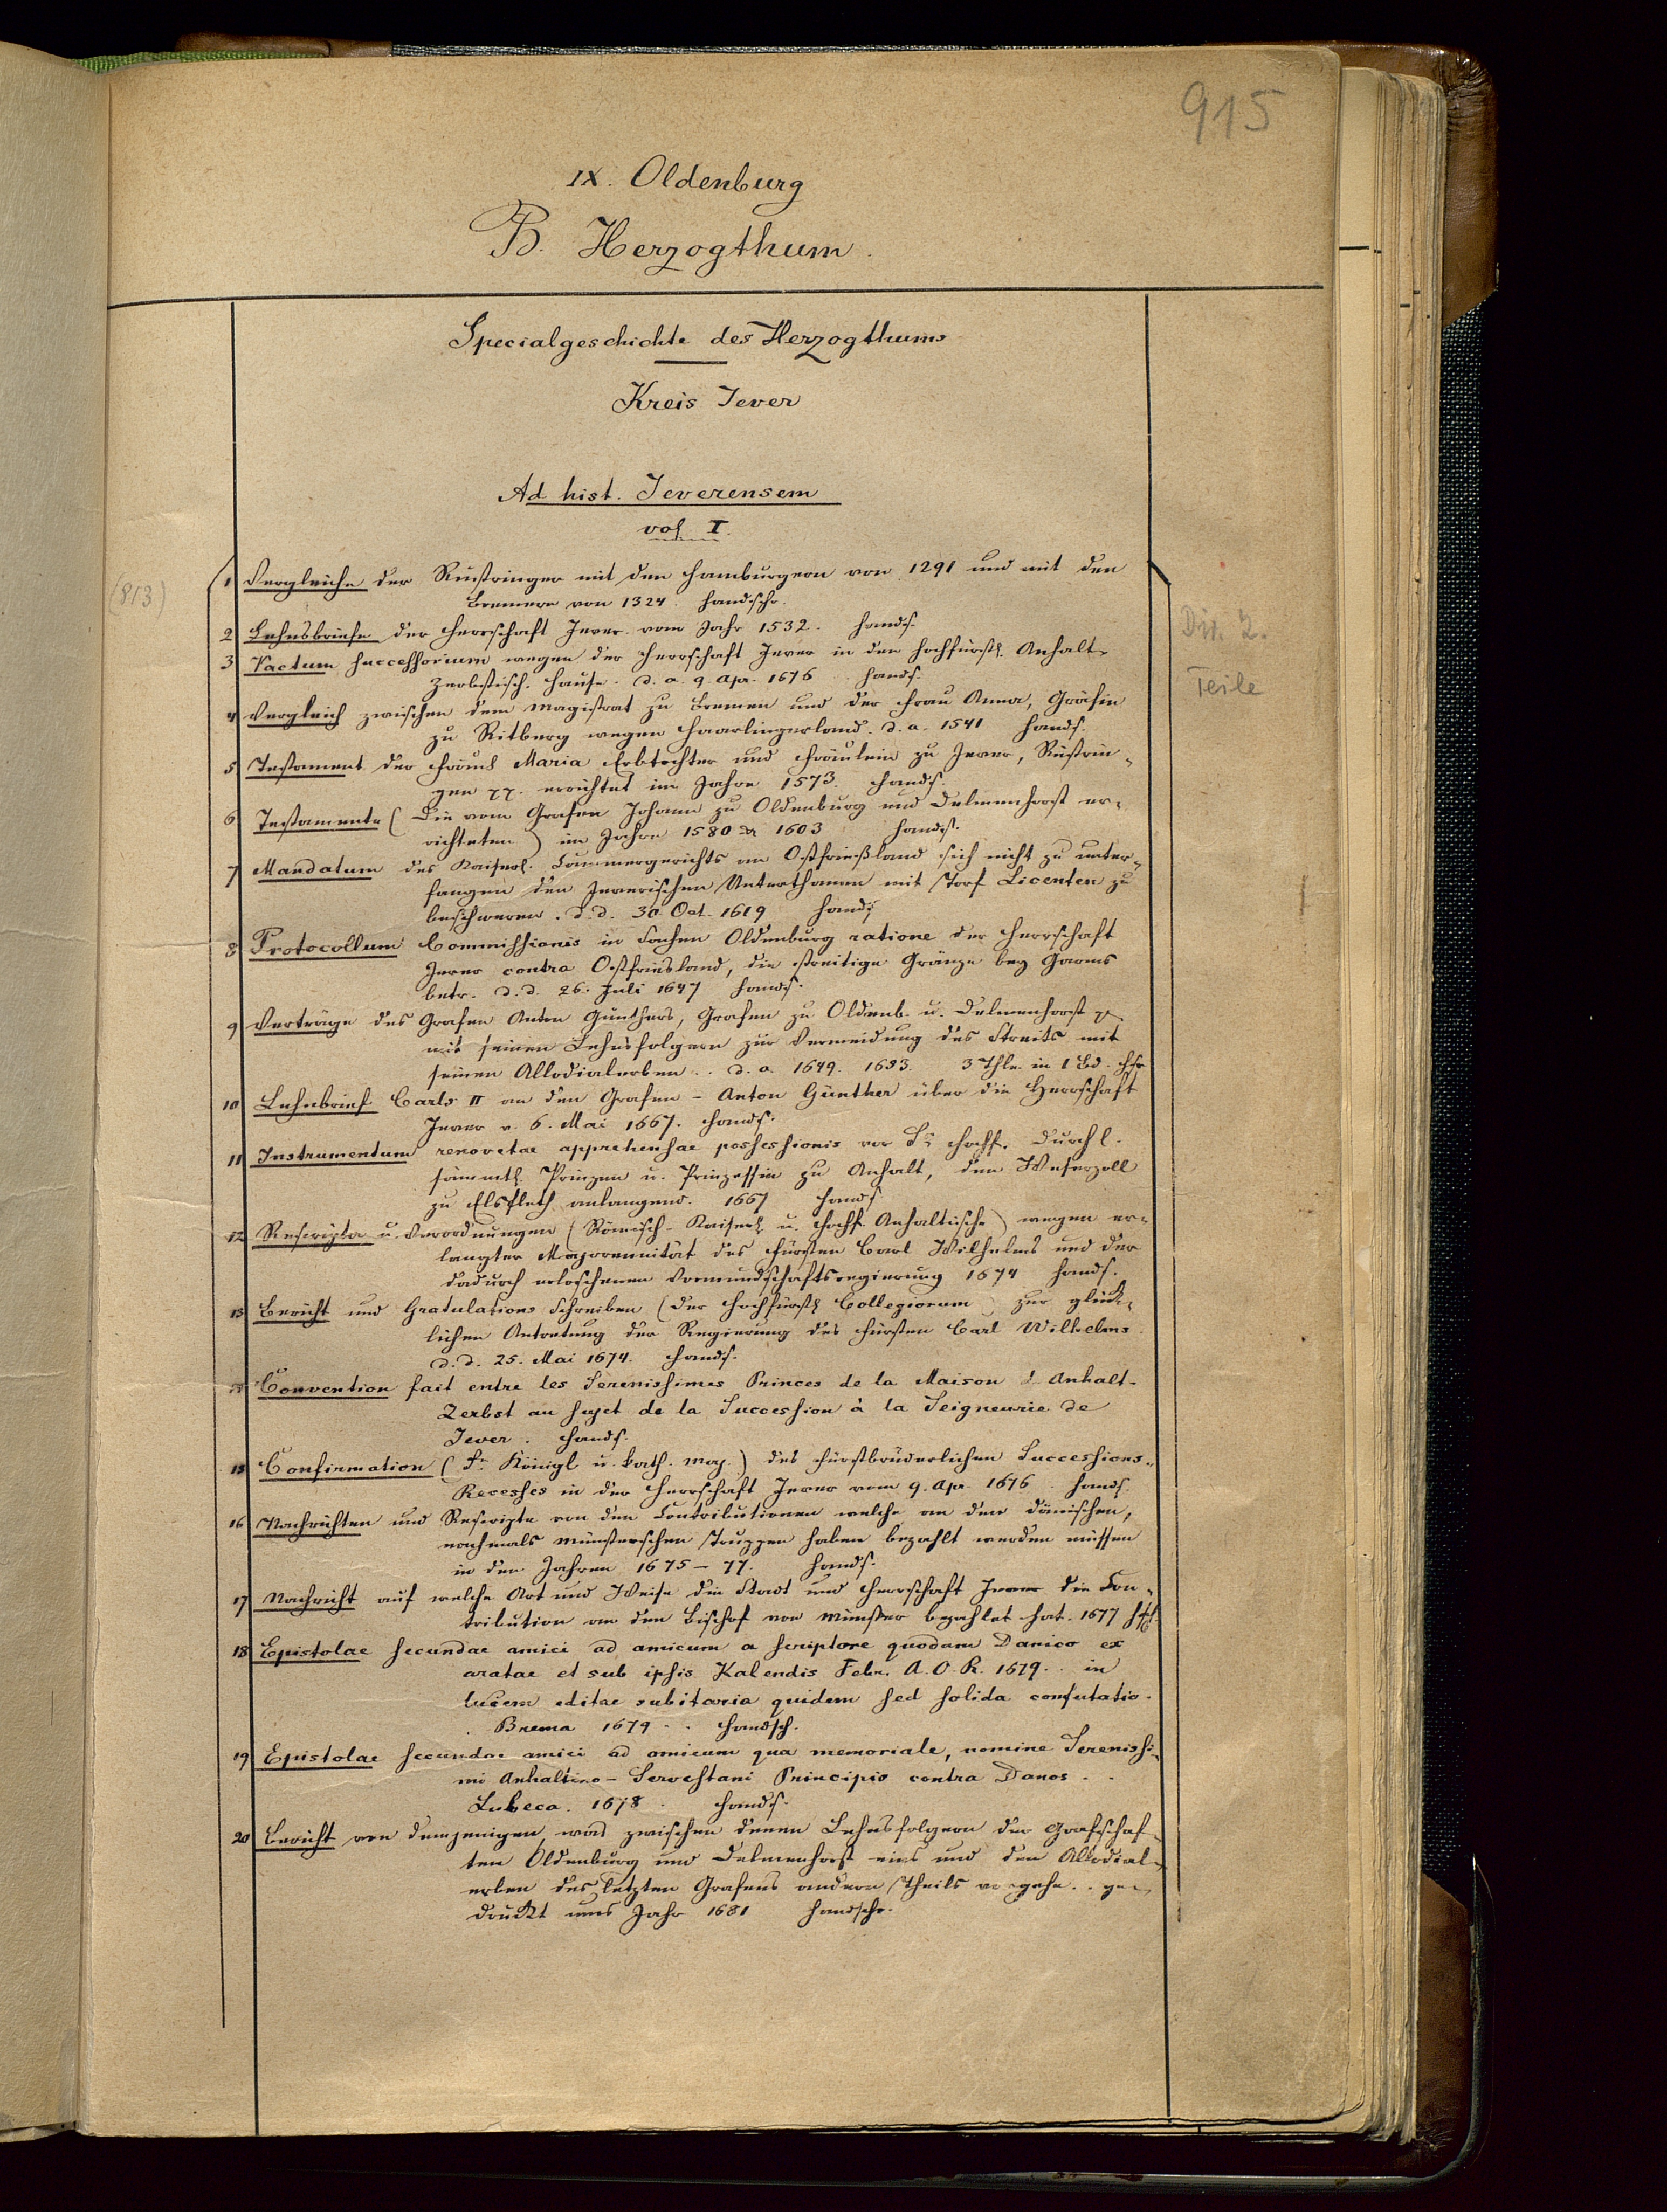 915
IX. Oldenburg
B. Herzogthum.
Specialgeschichte des Herzogthums
Kreis Jever
Ad hist. Jeverensem
vol. I.
(813)
1 Vergleiche der Rüstringer mit den Hamburgern von 1291 und mit den
Bremern von 1324. Handschr.
Div. 2.
2 Lehnsbriefe der Herrschaft Jever vom Jahr 1532. Hands.
3 Pactum successorium wegen der Herrschaft Jever in den Hochfürstl. Anhalt-
Zerbstisch. Hause. d. a. 9. Apr. 1676. Hands.
Teile
4 Vergleich zwischen dem Magistrat zu Bremen und der Frau Anna, Gräfin
zu Ritberg wegen Haarlingerland. d. a. 1541 Hands.
5 Testament der Fräul. Maria Erbtochter und Fräulein zu Jever, Rüstrin-
gen pp. errichtet im Jahre 1573. Hands.
6 Testamente (Die vom Grafen Johann zu Oldenburg und Delmenhorst er-
richteten) im Jahre 1580 & 1603 Hands.
7 Mandatum des Kaiserl. Cammergerichts an Ostfrießland sich nicht zu unter-
fangen den Jeverischen Unterthanen mit Torf Licenten zu
beschweren. d. d. 30. Oct. 1619 Hands.
8 Protocollum Commissionis in Sachen Oldenburg ratione der Herrschaft
Jever contra Ostfriesland, die streitige Gränze bey Garms
betr. d. d. 26. Juli 1647 Hands.
9 Verträge des Grafen Anton Günthers, Grafen zu Oldenb. u. Delmenhorst p.
mit seinen Lehnsfolgern zur Vermeidung des Streits mit
seinen Allodialerben.. d. a. 1649. 1653. 3 Thle. in 1 Bd. Hs.
10 Lehnbrief Carls II an den Grafen - Anton Günther über die Herrschaft
Jever v. 6. Mai 1667. Hands.
11 Instrumentum renovatae apprehensae possessionis vor Sr. Hochf. Durchl.
sämmtl. Prinzen u. Prinzessin zu Anhalt, den Weserzoll
zu Elsfleth anlangend. 1667 Hands.
12 Rescripta u. Verordnungen (Römisch-Kaiserl. u. Hochf. Anhaltische) wegen er-
langter Majorennität des Fürsten Carl Wilhelms und der
dadurch erloschenen Vormundschaftsregierung 1674 Hands.
13 Bericht und Gratulations Schreiben (der Hochfürstl. Collegiorum) zur glück-
lichen Antretung der Regierung des Fürsten Carl Wilhelms
d. d. 25. Mai 1674. Hands.
14 Convention fait entre les Serenissimes Princes de la Maison d'Anhalt-
Zerbst au sujet de la Succession à la Seigneurie de
Jever. Hands.
15 Confirmation (Sr. Königl. u. kath. Maj.) des Fürstbrüderlichen Successions-
Recesses in der Herrschaft Jever vom 9. Apr. 1676. Hands.
16 Nachrichten und Rescripte von den Contributionen welche an den dänischen,
nochmals münsterschen Truppen haben bezahlt werden müssen
in den Jahren 1675-77. Hands.
17 Nachricht auf welche Art und Weise die Stadt und Herrschaft Jever die Con-
tribution an den Bischof von Münster bezahlet hat. 1677
18 Epistolae secundae amici ad amicum a scriptore quodam Danico ex
aratae et sub ipsis Kalendis Febr. A. O. R. 1679.. in
lucem editae subitaria quidem sed solida confutatio.
Brema 1679.. Handsch.
19 Epistolae secundae amici ad amicum qua memoriale, nomine Serenissi-
mi Anhaltino-Servestani Principis contra Danos..
Lubeca. 1678. Hands.
20 Bericht von demjenigen, was zwischen denen Lehnsfolgern der Grafschaf-
ten Oldenburg und Delmenhorst eins und den Allodial-
erben des letzten Grafens andern Theils vorgehe.. ge-
druckt ums Jahr 1681 Handschr.